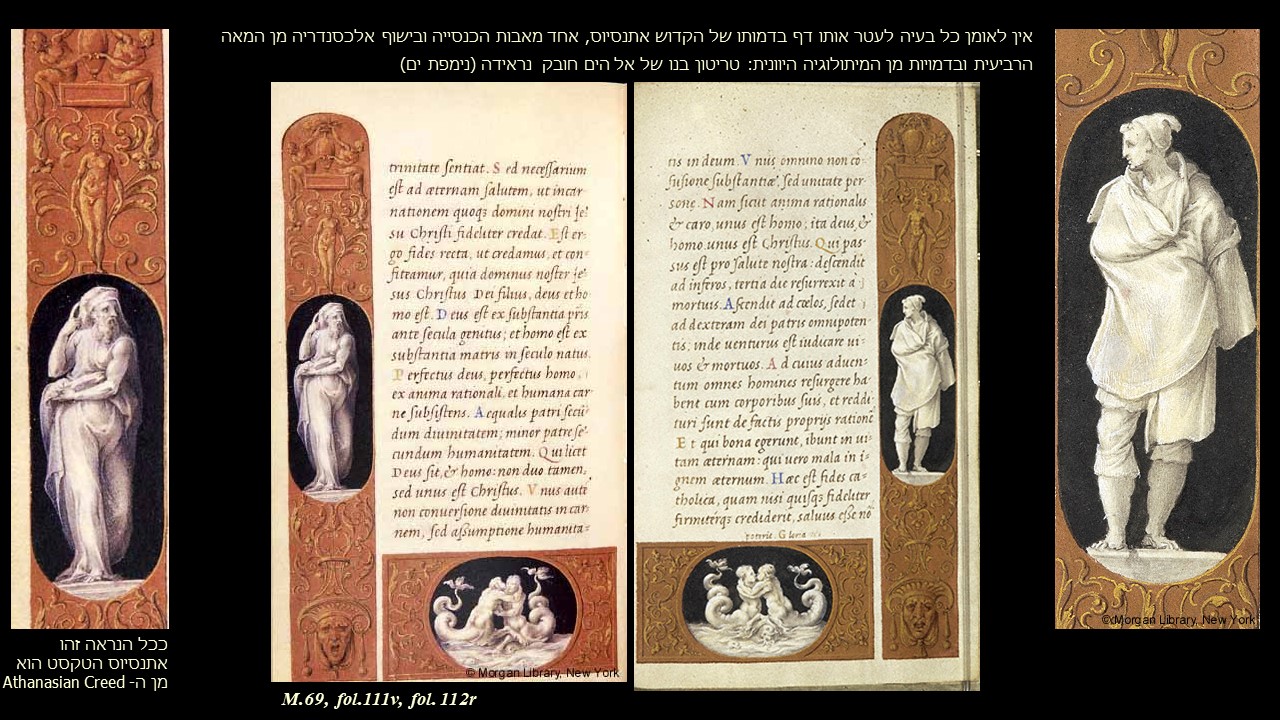 אין לאומן כל בעיה לעטר אותו דף בדמותו של הקדוש אתנסיוס, אחד מאבות הכנסייה ובישוף אלכסנדריה מן המאה
הרביעית ובדמויות מן המיתולוגיה היוונית: טריטון בנו של אל הים חובק נראידה (נימפת ים)
trinitate sentiat. S ed necessarium
est ad æternam salutem, ut incar-
nationem quoqз domini nostri Je-
su Christi fideliter credat. Est er-
go fides recta, ut credamus, et con-
fiteamur, quia dominus noster Je-
sus Christus Dei filius, deus et ho
mo est. D eus est ex substantia pr̄is
ante secula genitus; et homo est ex
substantia matris in seculo natus.
P erfectus deus, perfectus homo,
ex anima rationali, et humana car
ne subsistens. A equalis patri secū-
dum diuinitatem; minor patre se-
cundum humanitatem. Q ui licet
Deus sit, & homo: non duo tamen,
sed unus est Christus. V nus autē
non conuersione diuinitatis in car-
nem, sed assumptione humanita-
tis in deum. V nus omnino non cō
fusione substantiæ, sed unitate per-
sonę. N am sicut anima rationalis
& caro, unus est homo; ita deus, &
homo unus est Christus. Q ui pas-
sus est pro salute nostra: descendit
ad inferos, tertia die resurrexit a
mortuis. A scendit ad cœlos, sedet
ad dexteram dei patris omnipoten
tis; inde venturus est iudicare ui-
uos & mortuos. A d cuius aduen-
tum omnes homines resurgere ha-
bent cum corporibus suis, et reddi-
turi sunt de factis proprijs rationē
E t qui bona egerunt, ibunt in ui-
tam æternam: qui uero mala in i-
gnem æternum. H æc est fides ca-
tholica, quam nisi quisqз fideliter
firmiterqз crediderit, saluus esse nō
poterit. Gloria
© Morgan Library, New York
© Morgan Library, New York
ככל הנראה זהו
אתנסיוס הטקסט הוא
מן ה- Athanasian Creed
M.69, fol.111v, fol. 112r